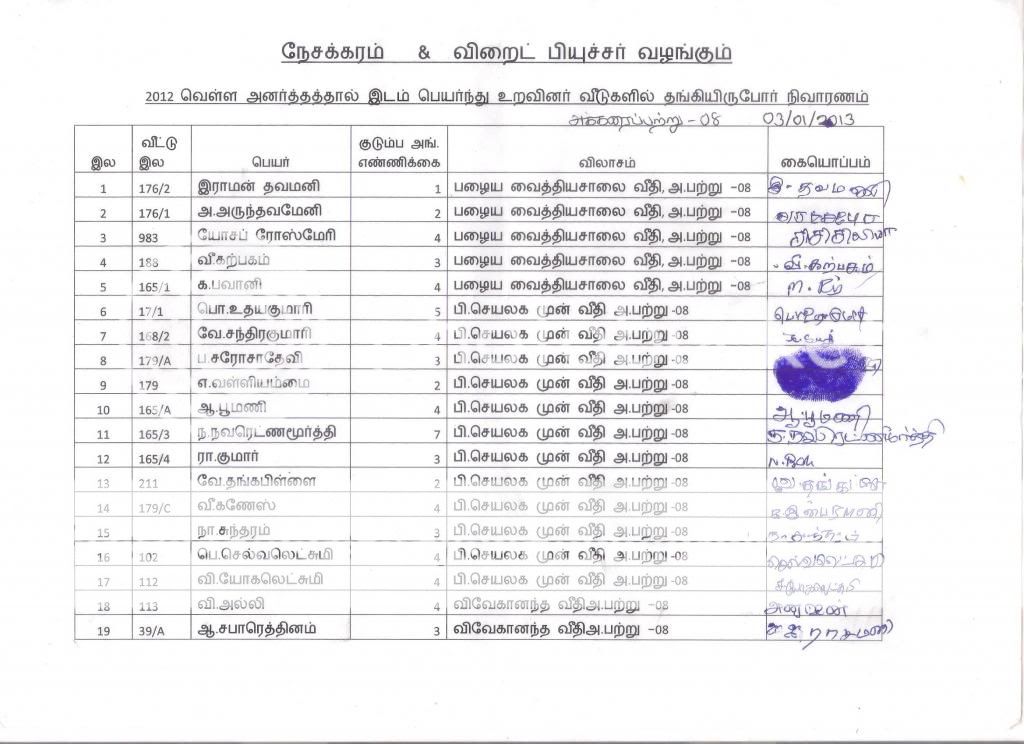 நேசக்கரம் & விறைட் பியுச்சர் வழங்கும்
2012 வெள்ள அனர்த்தத்தால் இடம் பெயர்ந்து உறவினர் வீடுகளில் தங்கியிருபோர் நிவாரணம்
அக்கரைப்பற்று - 08 03/01/2013
இல வீட்டு இல பெயர் குடும்ப அங். எண்ணிக்கை விலாசம் கையொப்பம்
1 176/2 இராமன் தவமனி 1 பழைய வைத்தியசாலை வீதி, அ.பற்று -08 இ - தவமணி
2 176/1 அ.அருந்தவமேனி 2 பழைய வைத்தியசாலை வீதி, அ.பற்று -08
3 983 யோசப் ரோஸ்மேரி 4 பழைய வைத்தியசாலை வீதி, அ.பற்று -08
4 188 வீ.கற்பகம் 3 பழைய வைத்தியசாலை வீதி, அ.பற்று -08 வீ.கற்பகம்
5 165/1 க.பவானி 4 பழைய வைத்தியசாலை வீதி, அ.பற்று -08
6 17/1 பொ.உதயகுமாரி 5 பி.செயலக முன் வீதி அ.பற்று -08
7 168/2 வே.சந்திரகுமாரி 4 பி.செயலக முன் வீதி அ.பற்று -08
8 179/A ப.சரோசாதேவி 3 பி.செயலக முன் வீதி அ.பற்று -08
9 179 எ.வள்ளியம்மை 2 பி.செயலக முன் வீதி அ.பற்று -08
10 165/A ஆ.பூமணி 4 பி.செயலக முன் வீதி அ.பற்று -08 ஆ.பூமணி
11 165/3 ந.நவரெட்ணமூர்த்தி 7 பி.செயலக முன் வீதி அ.பற்று -08
12 165/4 ரா.குமார் 3 பி.செயலக முன் வீதி அ.பற்று -08
13 211 வே.தங்கபிள்ளை 2 பி.செயலக முன் வீதி அ.பற்று -08
14 179/C வீ.கணேஸ் 4 பி.செயலக முன் வீதி அ.பற்று -08
15 நா.சுந்தரம் 3 பி.செயலக முன் வீதி அ.பற்று -08
16 102 பெ.செல்வலெட்சுமி 4 பி.செயலக முன் வீதி அ.பற்று -08
17 112 வி.யோகலெட்சுமி 4 பி.செயலக முன் வீதி அ.பற்று -08
18 113 வி.அல்லி 4 விவேகானந்த வீதிஅ.பற்று -08
19 39/A ஆ.சபாரெத்தினம் 3 விவேகானந்த வீதிஅ.பற்று -08